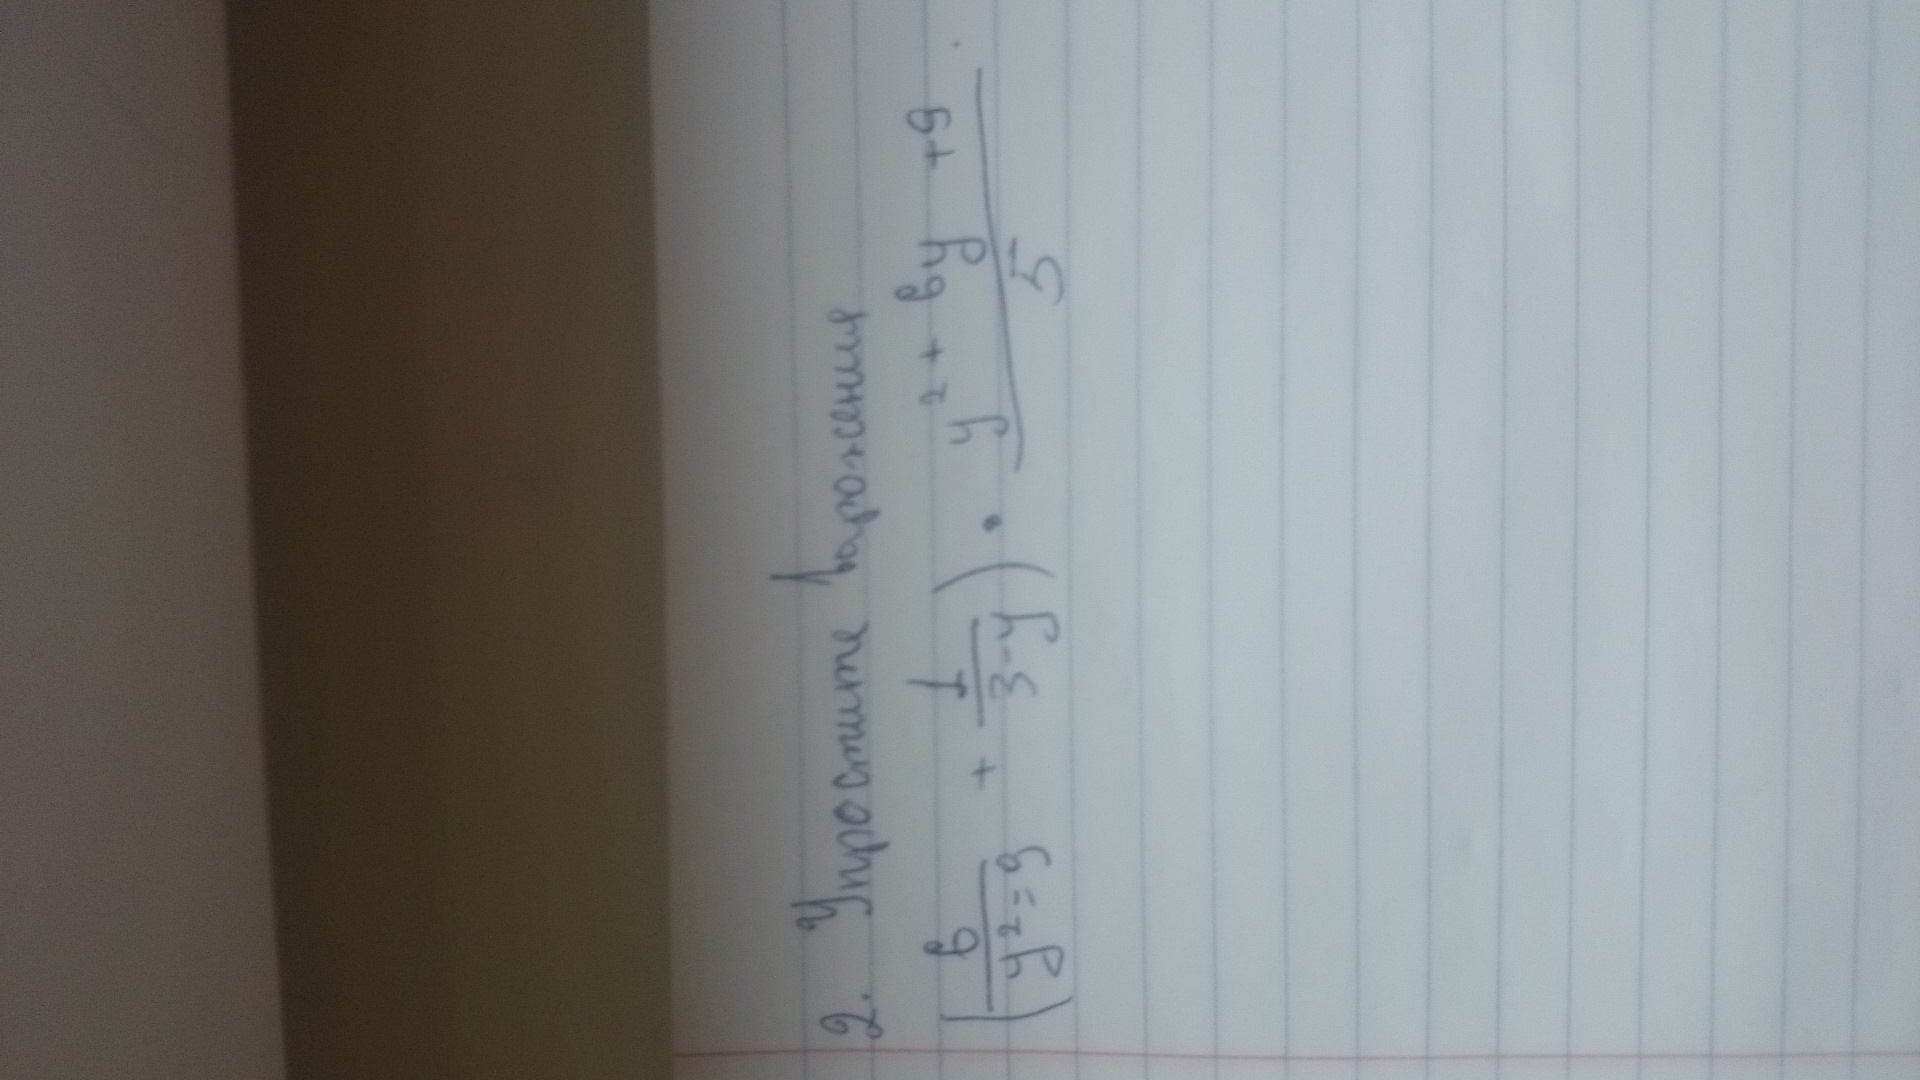 2. Упростите выражения
(6/(y²=9) + 1/(3-y)) · (y² + 6y + 9)/5 .